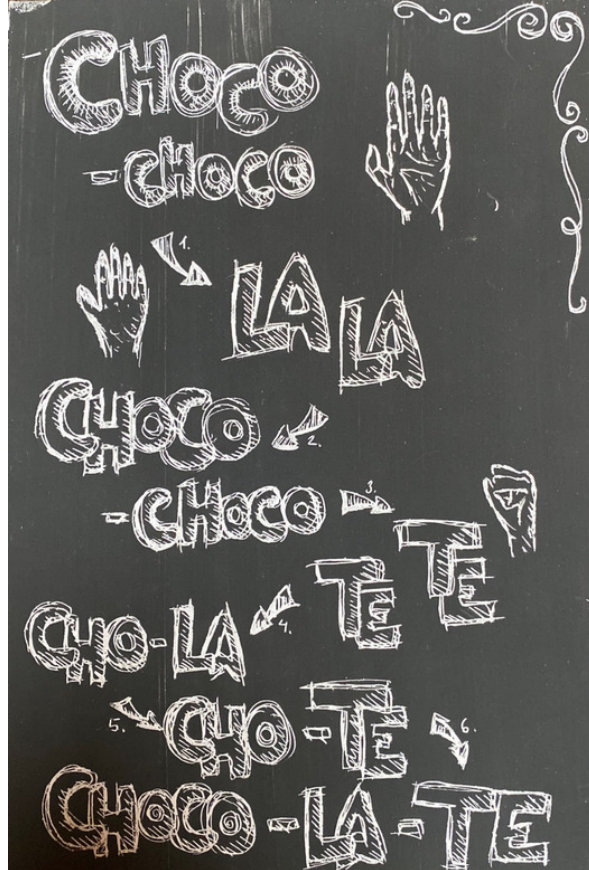 - CHOCO
- CHOCO
1.
LA LA
CHOCO
2.
- CHOCO
3.
TE TE
CHO - LA
4.
5.
CHO - TE
6.
CHOCO - LA - TE